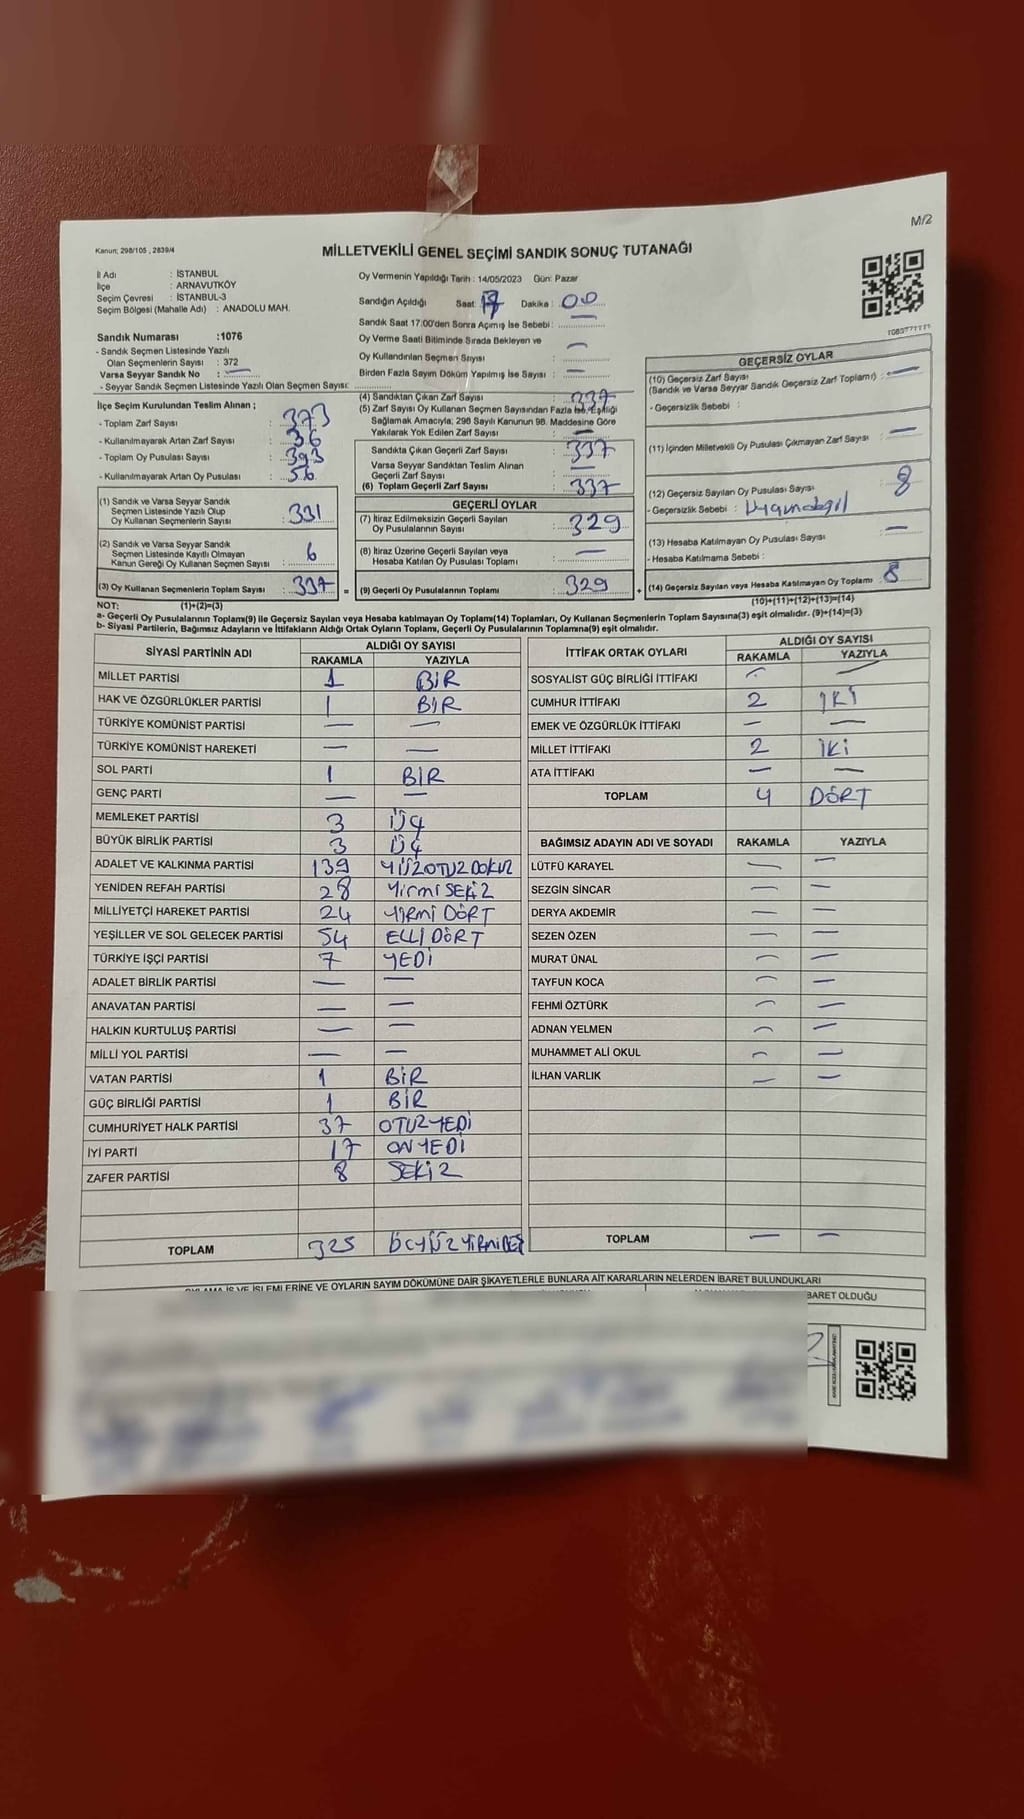 M/2
Kanun: 298/105 , 2839/4
MİLLETVEKİLİ GENEL SEÇİMİ SANDIK SONUÇ TUTANAĞI
İl Adı : İSTANBUL
İlçe : ARNAVUTKÖY
Seçim Çevresi : İSTANBUL-3
Seçim Bölgesi (Mahalle Adı) : ANADOLU MAH.
Oy Vermenin Yapıldığı Tarih : 14/05/2023 Gün: Pazar
Sandığın Açıldığı Saat: 17 Dakika : 00
Sandık Saat 17:00'den Sonra Açımış İse Sebebi : —
Oy Verme Saati Bitiminde Sırada Bekleyen ve
Oy Kullandırılan Seçmen Sayısı : —
Birden Fazla Sayım Döküm Yapılmış İse Sayısı : —
Sandık Numarası :1076
- Sandık Seçmen Listesinde Yazılı
Olan Seçmenlerin Sayısı : 372
Varsa Seyyar Sandık No : —
- Seyyar Sandık Seçmen Listesinde Yazılı Olan Seçmen Sayısı:
İlçe Seçim Kurulundan Teslim Alınan ;
- Toplam Zarf Sayısı : 373
- Kullanılmayarak Artan Zarf Sayısı : 36
- Toplam Oy Pusulası Sayısı : 393
- Kullanılmayarak Artan Oy Pusulası : 56
(1) Sandık ve Varsa Seyyar Sandık
Seçmen Listesinde Yazılı Olup
Oy Kullanan Seçmenlerin Sayısı : 331
(2) Sandık ve Varsa Seyyar Sandık
Seçmen Listesinde Kayıtlı Olmayan
Kanun Gereği Oy Kullanan Seçmen Sayısı : 6
(3) Oy Kullanan Seçmenlerin Toplam Sayısı : 337
(4) Sandıktan Çıkan Zarf Sayısı : 337
(5) Zarf Sayısı Oy Kullanan Seçmen Sayısından Fazla İse, Eşitliği
Sağlamak Amacıyla, 298 Sayılı Kanunun 98. Maddesine Göre
Yakılarak Yok Edilen Zarf Sayısı : —
Sandıkta Çıkan Geçerli Zarf Sayısı : 337
Varsa Seyyar Sandıktan Teslim Alınan
Geçerli Zarf Sayısı : —
(6) Toplam Geçerli Zarf Sayısı : 337
GEÇERLİ OYLAR
(7) İtiraz Edilmeksizin Geçerli Sayılan
Oy Pusulalarının Sayısı : 329
(8) İtiraz Üzerine Geçerli Sayılan veya
Hesaba Katılan Oy Pusulası Toplamı : —
= (9) Geçerli Oy Pusulalarının Toplamı : 329
GEÇERSİZ OYLAR
(10) Geçersiz Zarf Sayısı
(Sandık ve Varsa Seyyar Sandık Geçersiz Zarf Toplamı) : —
- Geçersizlik Sebebi :
(11) İçinden Milletvekili Oy Pusulası Çıkmayan Zarf Sayısı : —
(12) Geçersiz Sayılan Oy Pusulası Sayısı : 8
- Geçersizlik Sebebi :
(13) Hesaba Katılmayan Oy Pusulası Sayısı : —
- Hesaba Katılmama Sebebi :
+ (14) Geçersiz Sayılan veya Hesaba Katılmayan Oy Toplamı : 8
NOT: (1)+(2)=(3)
(10)+(11)+(12)+(13)=(14)
a- Geçerli Oy Pusulalarının Toplamı(9) ile Geçersiz Sayılan veya Hesaba katılmayan Oy Toplamı(14) Toplamları, Oy Kullanan Seçmenlerin Toplam Sayısına(3) eşit olmalıdır. (9)+(14)=(3)
b- Siyasi Partilerin, Bağımsız Adayların ve İttifakların Aldığı Ortak Oyların Toplamı, Geçerli Oy Pusulalarının Toplamına(9) eşit olmalıdır.
SİYASİ PARTİNİN ADI ALDIĞI OY SAYISI
RAKAMLA YAZIYLA
MİLLET PARTİSİ 1 BİR
HAK VE ÖZGÜRLÜKLER PARTİSİ 1 BİR
TÜRKİYE KOMÜNİST PARTİSİ — —
TÜRKİYE KOMÜNİST HAREKETİ — —
SOL PARTİ 1 BİR
GENÇ PARTİ — —
MEMLEKET PARTİSİ 3 ÜÇ
BÜYÜK BİRLİK PARTİSİ 3 ÜÇ
ADALET VE KALKINMA PARTİSİ 139 YÜZOTUZDOKUZ
YENİDEN REFAH PARTİSİ 28 YirmiSEKİZ
MİLLİYETÇİ HAREKET PARTİSİ 24 YİRMİ DÖRT
YEŞİLLER VE SOL GELECEK PARTİSİ 54 ELLİ DÖRT
TÜRKİYE İŞÇİ PARTİSİ 7 YEDİ
ADALET BİRLİK PARTİSİ — —
ANAVATAN PARTİSİ — —
HALKIN KURTULUŞ PARTİSİ — —
MİLLİ YOL PARTİSİ — —
VATAN PARTİSİ 1 BİR
GÜÇ BİRLİĞİ PARTİSİ 1 BİR
CUMHURİYET HALK PARTİSİ 37 OTUZYEDİ
İYİ PARTİ 17 ON YEDİ
ZAFER PARTİSİ 8 SEKİZ
TOPLAM 325 ÜÇYÜZYİRMİBEŞ
İTTİFAK ORTAK OYLARI ALDIĞI OY SAYISI
RAKAMLA YAZIYLA
SOSYALİST GÜÇ BİRLİĞİ İTTİFAKI — —
CUMHUR İTTİFAKI 2 İKİ
EMEK VE ÖZGÜRLÜK İTTİFAKI — —
MİLLET İTTİFAKI 2 İKİ
ATA İTTİFAKI — —
TOPLAM 4 DÖRT
BAĞIMSIZ ADAYIN ADI VE SOYADI RAKAMLA YAZIYLA
LÜTFÜ KARAYEL — —
SEZGİN SİNCAR — —
DERYA AKDEMİR — —
SEZEN ÖZEN — —
MURAT ÜNAL — —
TAYFUN KOCA — —
FEHMİ ÖZTÜRK — —
ADNAN YELMEN — —
MUHAMMET ALİ OKUL — —
İLHAN VARLIK — —
TOPLAM — —
İŞ VE İŞLEMLERİNE VE OYLARIN SAYIM DÖKÜMÜNE DAİR ŞİKAYETLERLE BUNLARA AİT KARARLARIN NELERDEN İBARET BULUNDUKLARI
BARET OLDUĞU